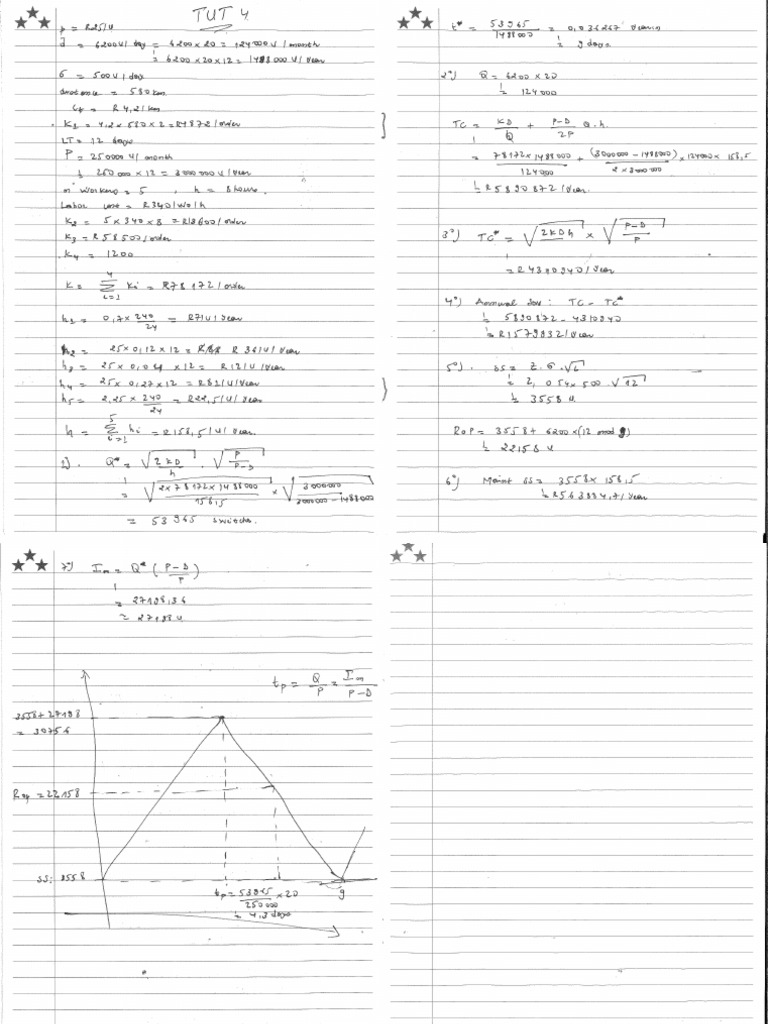 TUT 4.
p = R25/u
d = 6200u/day = 6200 x 20 = 124000 u/month
= 6200 x 20 x 12 = 1488000 u/year
σ = 500u/day
distance = 580km
= R4,2/km
K1 = 4,2 x 580 x 2 = R4872/order
LT = 12 days
P = 250000 u/month
= 250000 x 12 = 3000000 u/year
n° workers = 5 , h = 8 hours.
Labor cost = R340/wo/h
K2 = 5 x 340 x 8 = R13600/order
K3 = R58500/order
K4 = 1200
K = Σ Ki = R78172/order
h1 = 0,7 x 240/24 = R7/u/year
h2 = 25 x 0,12 x 12 = R36/u/year
h3 = 25 x 0,04 x 12 = R12/u/year
h4 = 25 x 0,27 x 12 = R81/u/year
h5 = 2,25 x 240/24 = R22,5/u/year.
h = Σ hi = R158,5/u/year.
1). Q* = √(2KD/h) . √(P/(P-D))
= √(2 x 78172 x 1488000/158,5) x √(3000000/(3000000-1488000))
= 53965 switches.
t* = 53965/1488000 = 0,036267 years
= 9 days
2°) Q = 6200 x 20
= 124000
TC = KD/Q + (P-D)/2P Q.h
= 78172 x 1488000/124000 + (3000000-1488000)/(2 x 3000000) x 124000 x 158,5
= R5890872/year.
3°) TC* = √(2KDh) x √((P-D)/P)
= R4310940/year
4°) Annual sav: TC - TC*
= 5890872 - 4310940
= R1579932/year
5°) SS = Z.σ.√L
= 2,054 x 500 √12
= 3558 u.
RoP = 3558 + 6200 x (12 mod 9)
= 22158 u
6°) Maint SS = 3558 x 158,5
= R563994,7/year
7°) Im = Q* (P-D/P)
= 27198,36
= 27198 u
tp = Q/P = Im/(P-D)
3558+27198
= 30756
Rop = 22158
SS: 3558
tp = 53965/250000 x 20
= 4,3 days
9